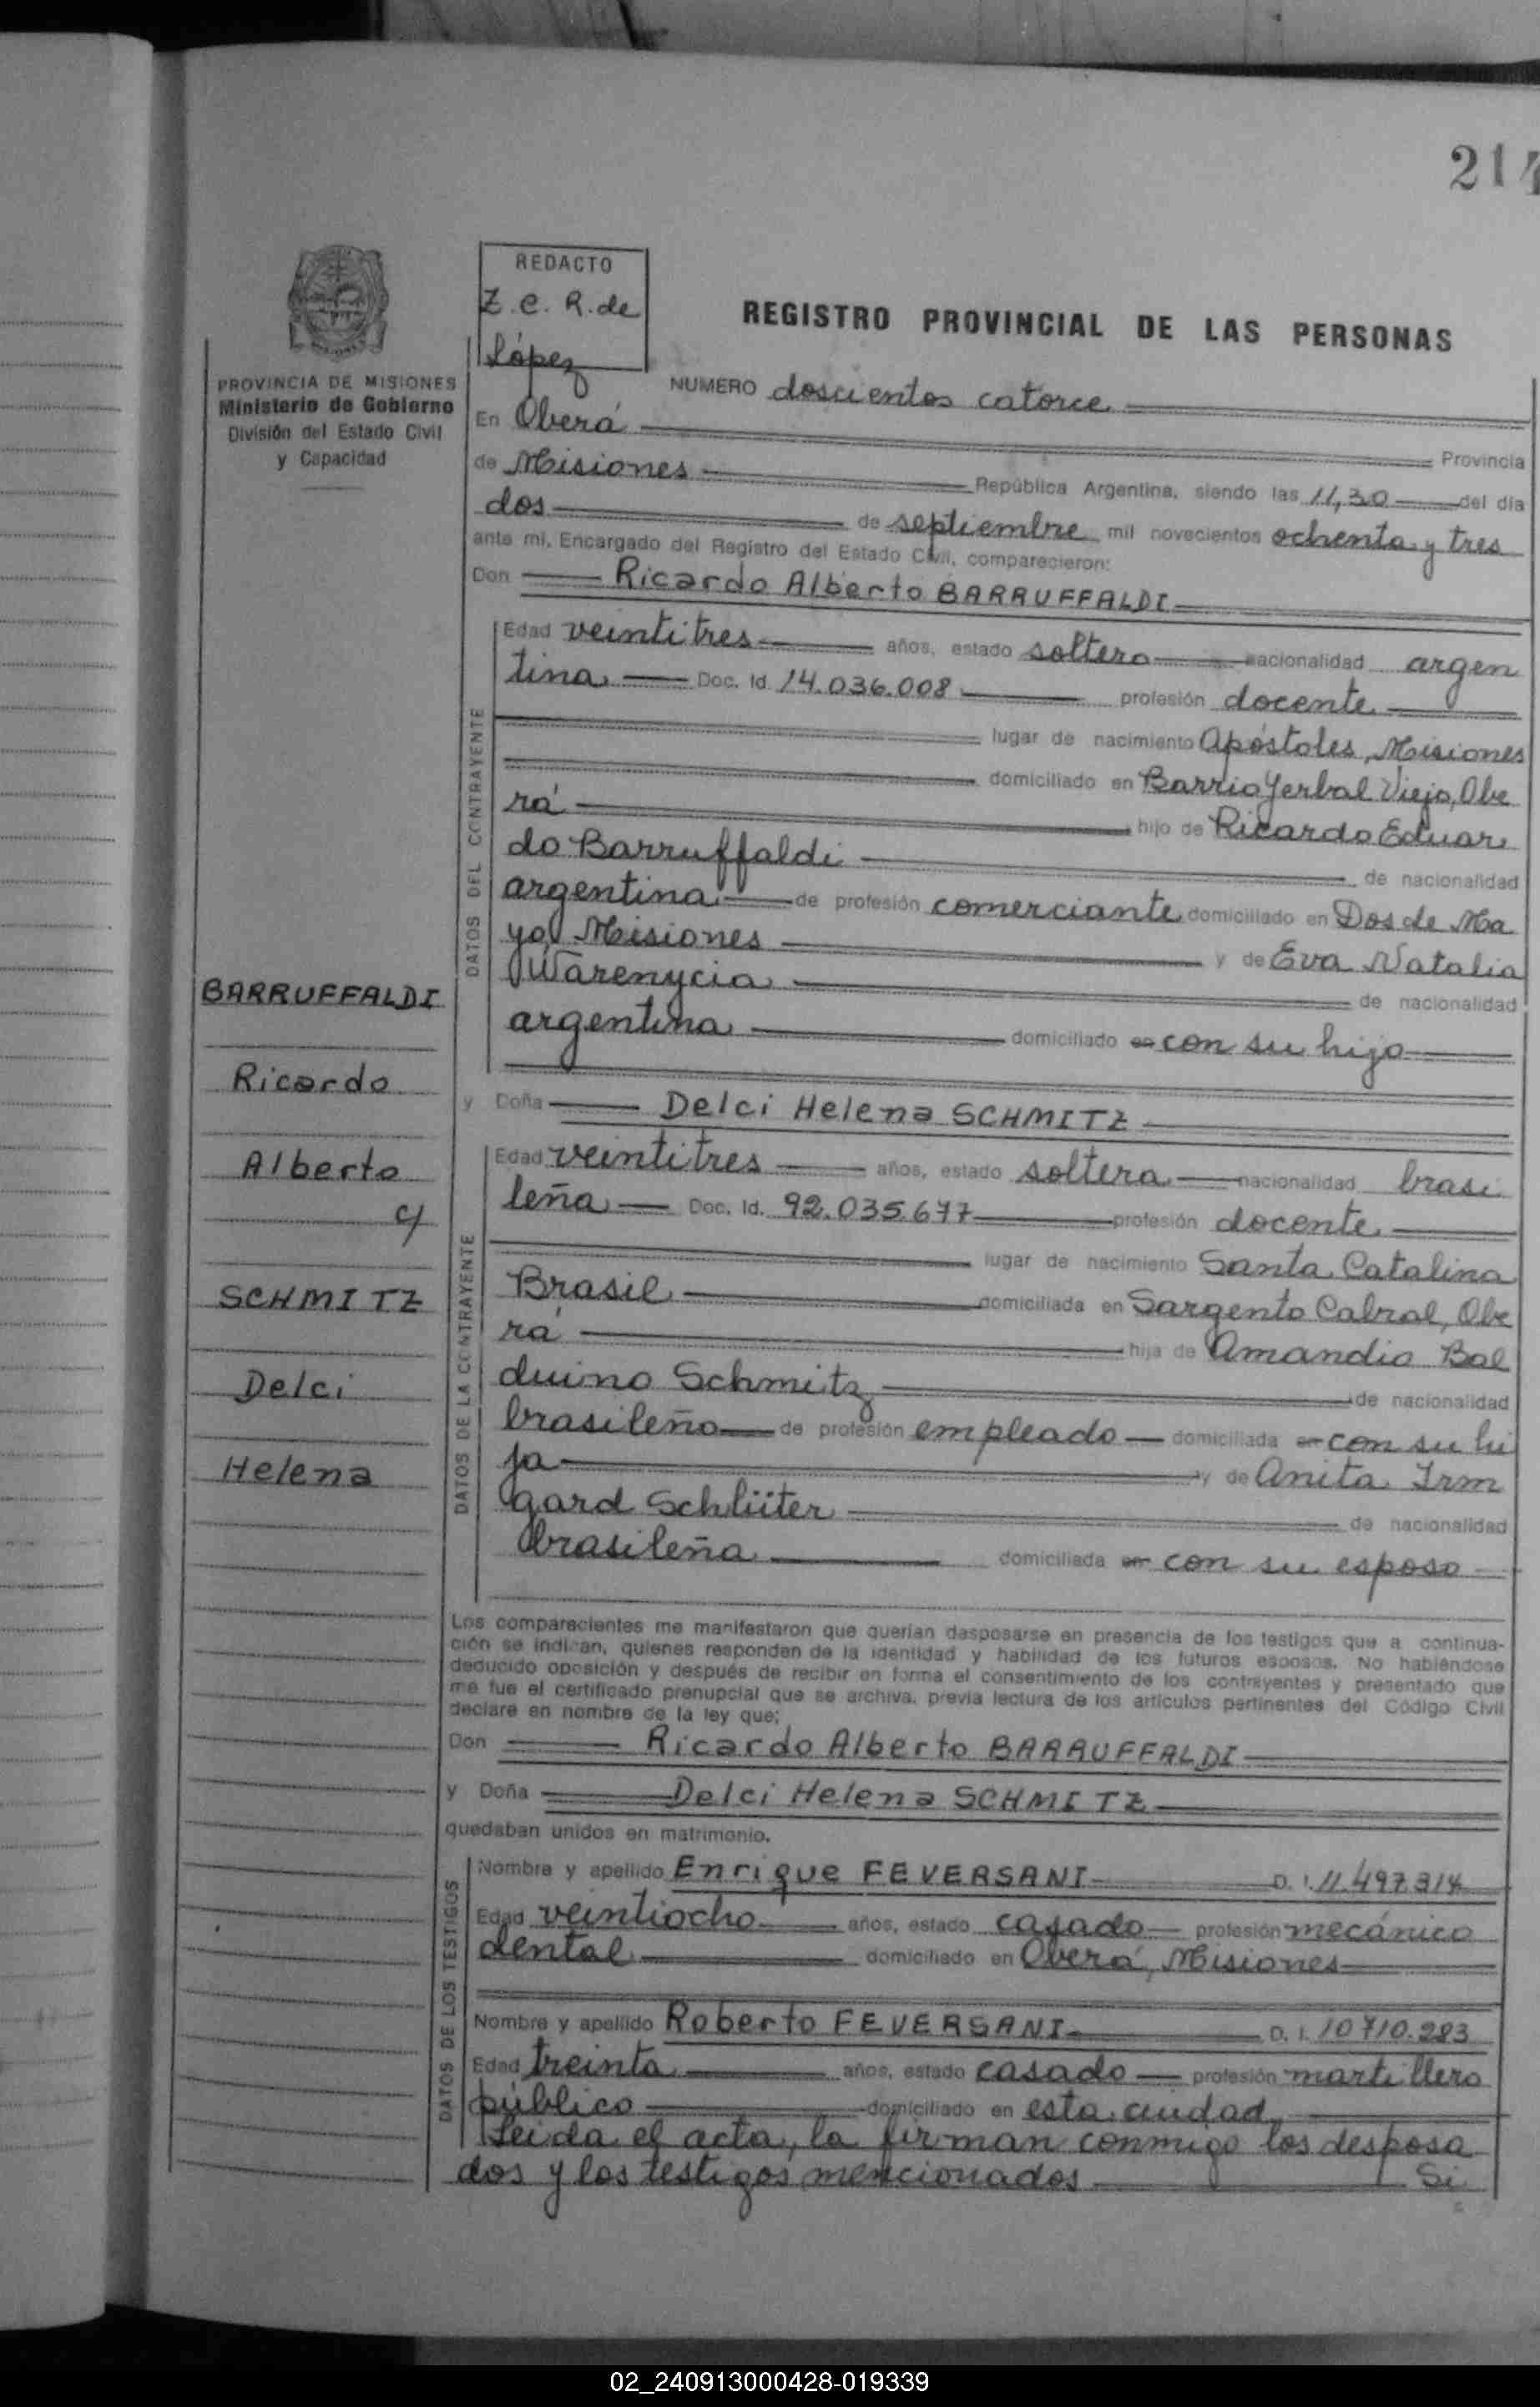 214
REDACTO
Z. C. R. de
López
REGISTRO PROVINCIAL DE LAS PERSONAS
PROVINCIA DE MISIONES
Ministerio de Gobierno
División del Estado Civil
y Capacidad
NUMERO doscientos catorce
En Oberá Provincia
de Misiones República Argentina, siendo las 11,30 del día
dos de septiembre mil novecientos ochenta y tres
ante mi, Encargado del Registro del Estado Civil, comparecieron:
Don Ricardo Alberto BARRUFFALDI
DATOS DEL CONTRAYENTE
Edad veintitres años, estado soltero nacionalidad argen
tina Doc. Id. 14.036.008 profesión docente
lugar de nacimiento Apóstoles, Misiones
domiciliado en Barrio Yerbal Viejo, Obe
rá hijo de Ricardo Eduar
do Barruffaldi de nacionalidad
argentina de profesión comerciante domiciliado en Dos de Ma
yo, Misiones y de Eva Natalia
Warenycia de nacionalidad
argentina domiciliado en con su hijo
BARRUFFALDI
Ricardo
Alberto
c/
SCHMITZ
Delci
Helena
y Doña Delci Helena SCHMITZ
DATOS DE LA CONTRAYENTE
Edad veintitres años, estado soltera nacionalidad brasi
leña Doc. Id. 92.035.677 profesión docente
lugar de nacimiento Santa Catalina
Brasil domiciliada en Sargento Cabral, Obe
rá hija de Amandio Bal
duino Schmitz de nacionalidad
brasileño de profesión empleado domiciliada en con su hi
ja y de Anita Irm
gard Schlüter de nacionalidad
brasileña domiciliada en con su esposo
Los comparecientes me manifestaron que querían desposarse en presencia de los testigos que a continua-
ción se indican, quienes responden de la identidad y habilidad de los futuros esposos. No habiéndose
deducido oposición y después de recibir en forma el consentimiento de los contrayentes y presentado que
me fue el certificado prenupcial que se archiva, previa lectura de los artículos pertinentes del Código Civil
declare en nombre de la ley que:
Don Ricardo Alberto BARRUFFALDI
y Doña Delci Helena SCHMITZ
quedaban unidos en matrimonio.
DATOS DE LOS TESTIGOS
Nombre y apellido Enrique FEVERSANI D. I. 11.497.314
Edad veintiocho años, estado casado profesión mecánico
dental domiciliado en Oberá, Misiones
Nombre y apellido Roberto FEVERSANI D. I. 10710.283
Edad treinta años, estado casado profesión martillero
público domiciliado en esta ciudad
Leida el acta, la firman conmigo los desposa
dos y los testigos mencionados Si
02_240913000428-019339